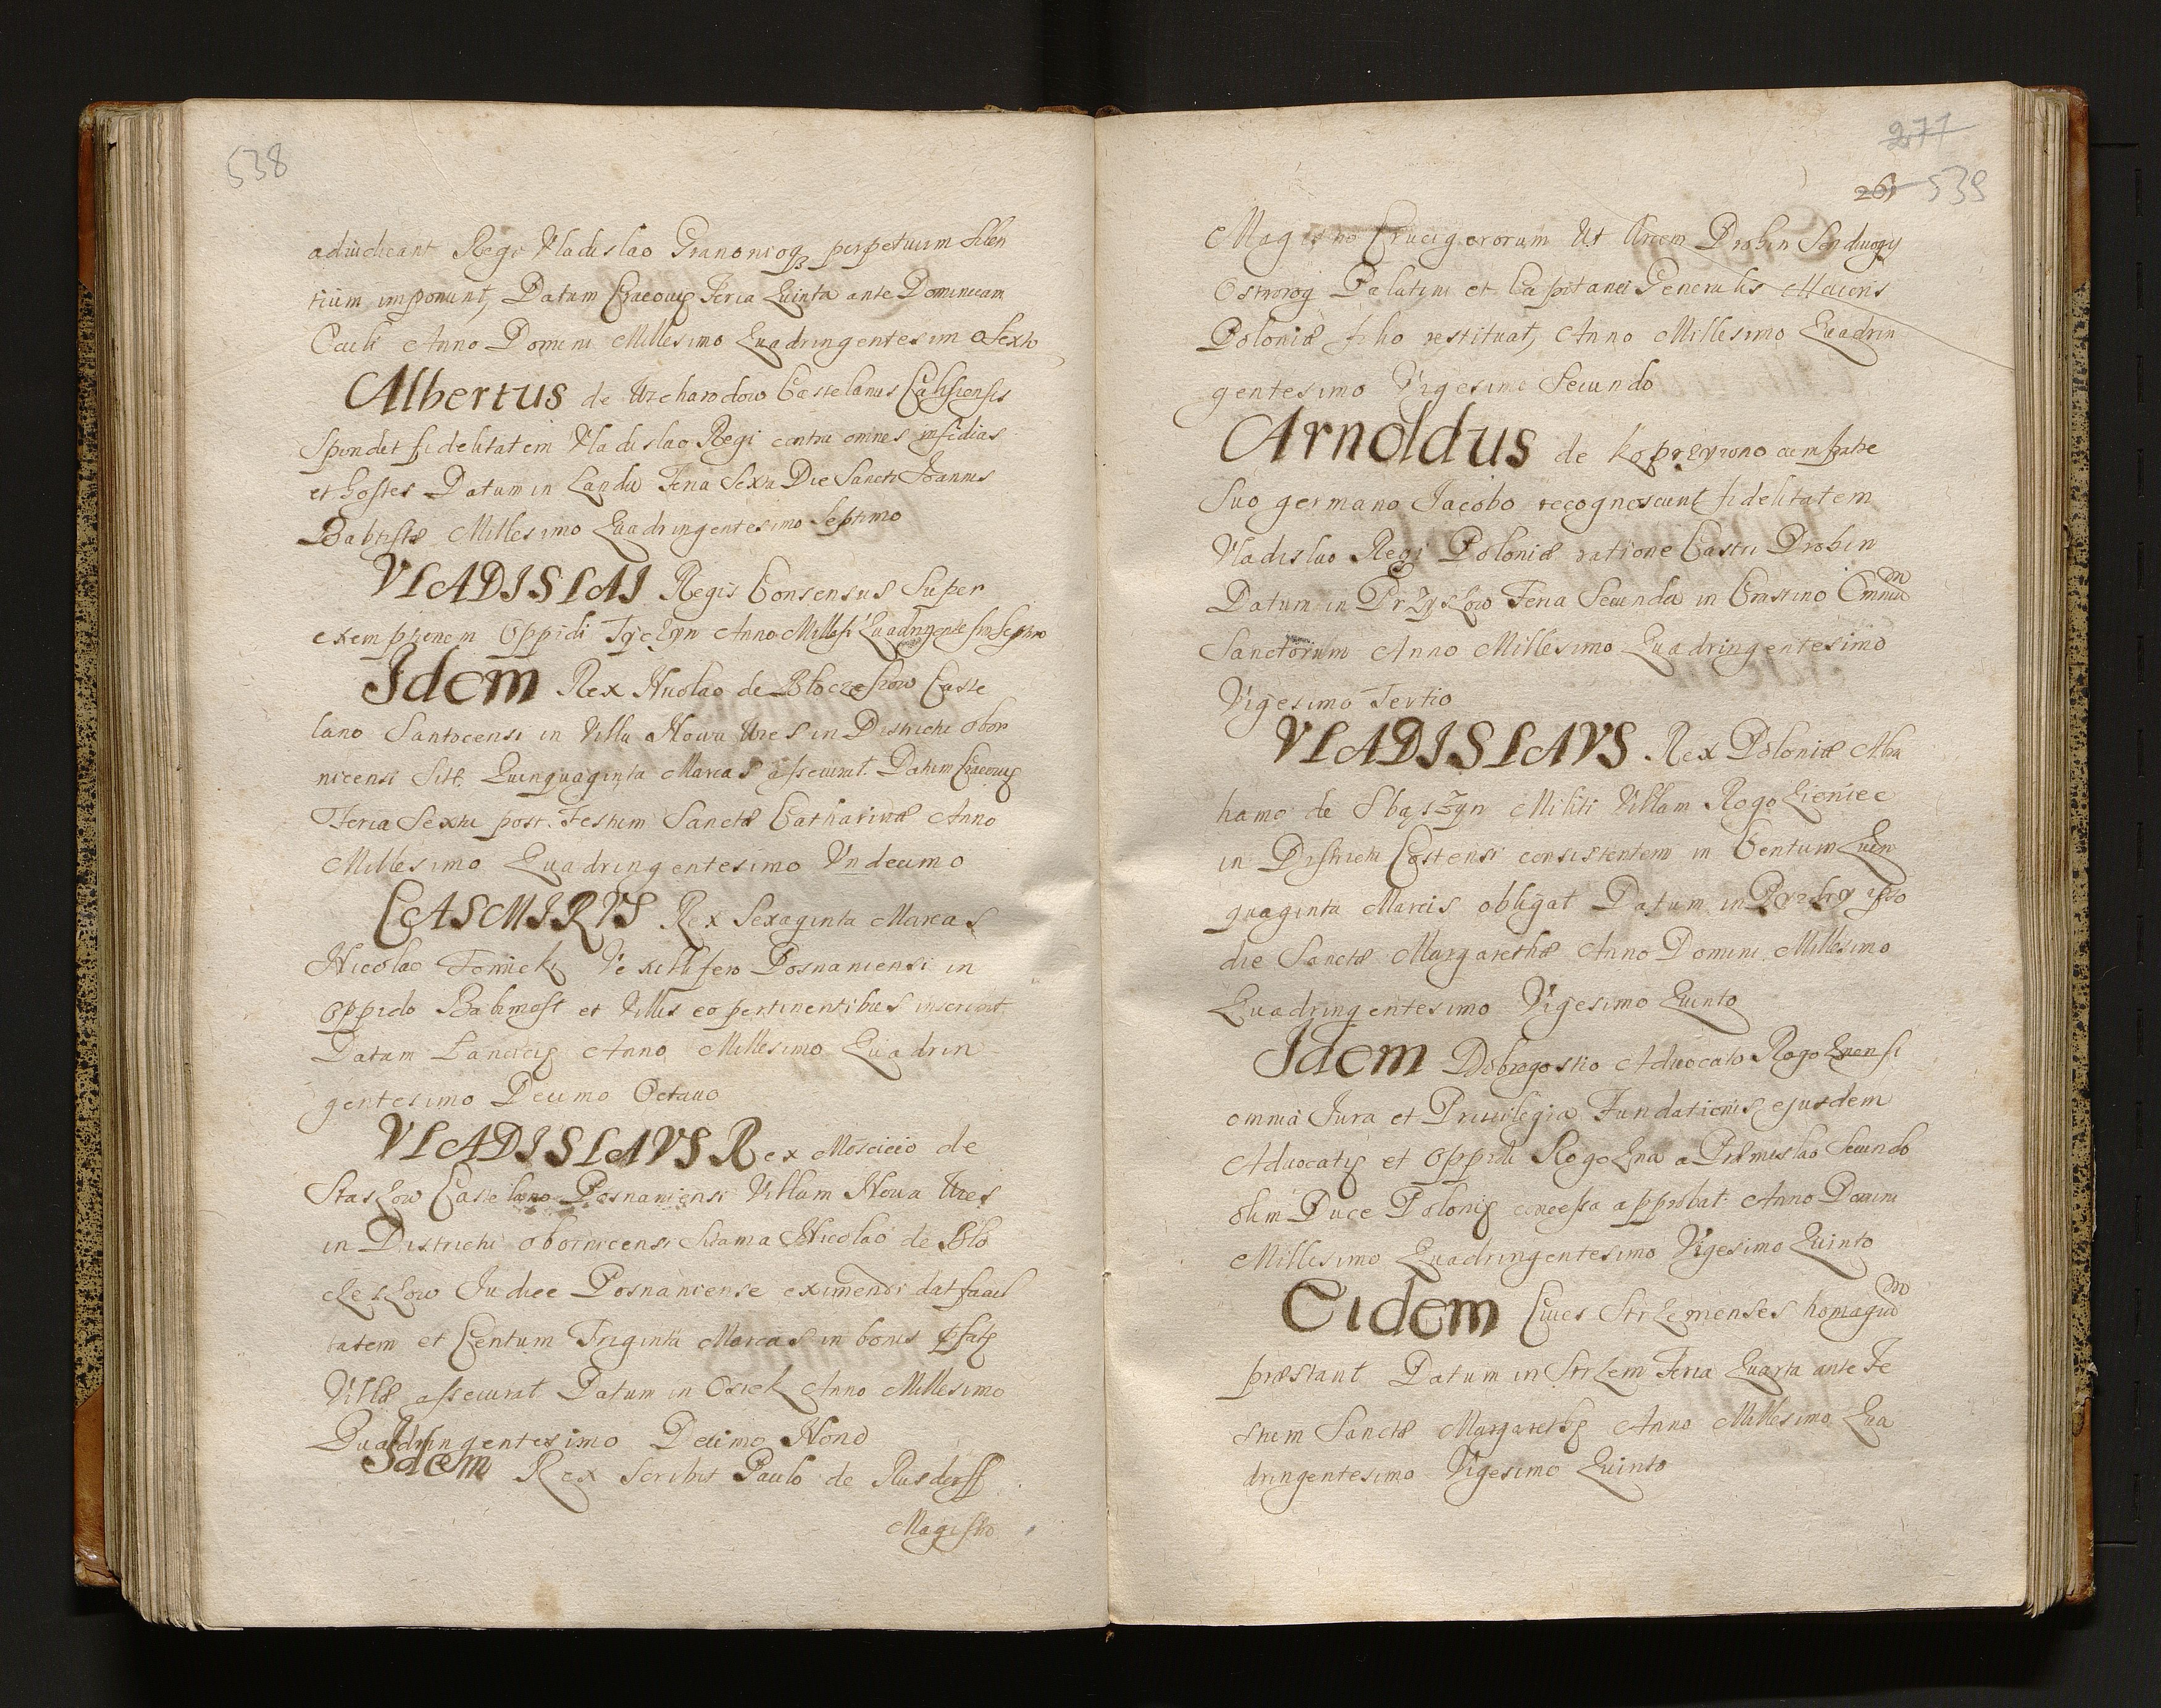 538
adiudicant Regi Vladislao Granonioqz perpetuum silen
tium imponunt, Datum Cracouię Feria Quinta ante Dominicam
Oculi Anno Domini Millesimo Quadringentesimo Sexto
Albertus de Uscharodow Castelanus Calisiensis
Spondet fidelitatem Vladislao Regi contra omnes insidias
et hostes Datum in Landa Feria Sexta Die Sancti Joannis
Babtistæ Millesimo Quadringentesimo Septimo
VLADISLAI Regis Consensus Super
exemptionem Oppidi Tyczyn Anno Millesi Quadringentesimo Septimo
Idem Rex Nicolao de Bloczeszow Caste
lano Santocensi in Villa Nowa Wies in Districtu obor
nicensi Sitæ Quinquaginta Marcas assecurat. Datum Cracouię
Feria Sexta post Festum Sanctæ Catharinæ Anno
Millesimo Quadringentesimo Vndecimo
CASMIRVS Rex Sexaginta Marcas
Nicolao Tomicki Vexillifero Posnaniensi in
Oppido Babimost et Villis eo pertinentibus inscribit
Datum Lancicię Anno Millesimo Quadrin
gentesimo Decimo Octauo
VLADISLAVS Rex Moscicio de
Staszow Castelano Posnaniensi Villam Nowa Wies
in Districtu obornicensi Sitam a Nicolao de Blo
czeszow Judice Posnaniense eximendi dat facul
tatem et Centum Triginta Marcas in bonis pfatę
Villæ assecurat Datum in Osiek Anno Millesimo
Quadringentesimo Decimo Nono
Idem Rex Scribit Paulo de Rusdorff
Magistro
277
261 539
Magistro Crucigerorum Ut Arcem Drobin Sendiuogij
Ostrorog Palatini et Capitanei Generalis Maioris
Poloniæ filio restituat, Anno Millesimo Quadrin
gentesimo Vigesimo Secundo
Arnoldus de Koprzywno cum fratre
Suo germano Jacobo recognoscunt fidelitatem
Vladislao Regi Poloniæ ratione Castri Drobin
Datum in Przyszow Feria Secunda in Crastino Omniu m
Sanctorum Anno Millesimo Quadringentesimo
Vigesimo Tertio
VLADISLAVS Rex Poloniæ Abra
hamo de Sbąszyn Militi Villam Rogoziniec
in Districtu Costensi consistentem in Centum Quin
quaginta Marcis obligat Datum in ipso
die Sanctæ Margarethæ Anno Domini Millesimo
Quadringentesimo Vigesimo Quinto
Idem Dobrogostio Aduocato Rogoznensi
omnia Jura et Priuilegia Fundationis ejusdem
Aduocatię et Oppidi Rogozna a Præmislao Secundo
olim Duce Polonię concessa approbat Anno Domini
Millesimo Quadringentesimo Vigesimo Quinto
Eidem Ciues Strzemenses homagiu m
præstant Datum in Strzem Feria Quarta ante Fe
stum Sanctæ Margarethę Anno Millesimo Qua
dringentesimo Vigesimo Quinto